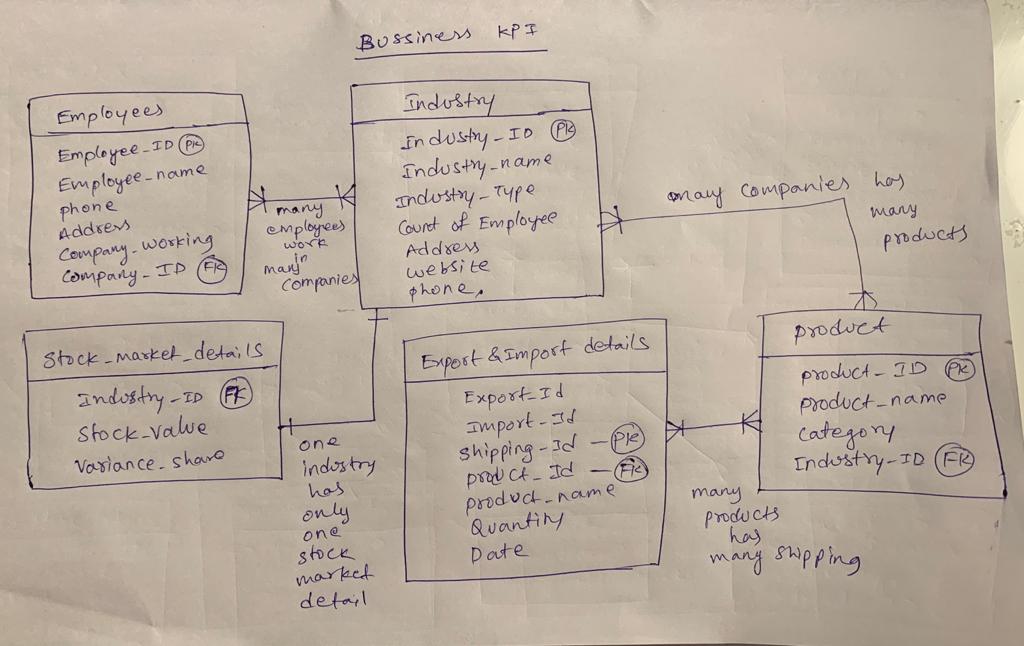 Bussiness KPI
Employees
Employee_ID PK
Employee_name
phone
Address
Company_working
Company_ID FK
many
employees
work
in
many
companies
Industry
Industry_ID PK
Industry_name
Industry_Type
Count of Employee
Address
website
phone.
many companies has
many
products
Stock_market_details
Industry_ID FK
Stock_value
Variance_share
one
industry
has
only
one
stock
market
detail
Export & Import details
Export_Id
Import_Id
Shipping_Id - PK
product_Id - FK
product_name
Quantity
Date
product
product_ID PK
product_name
Category
Industry_ID FK
many
products
has
many shipping